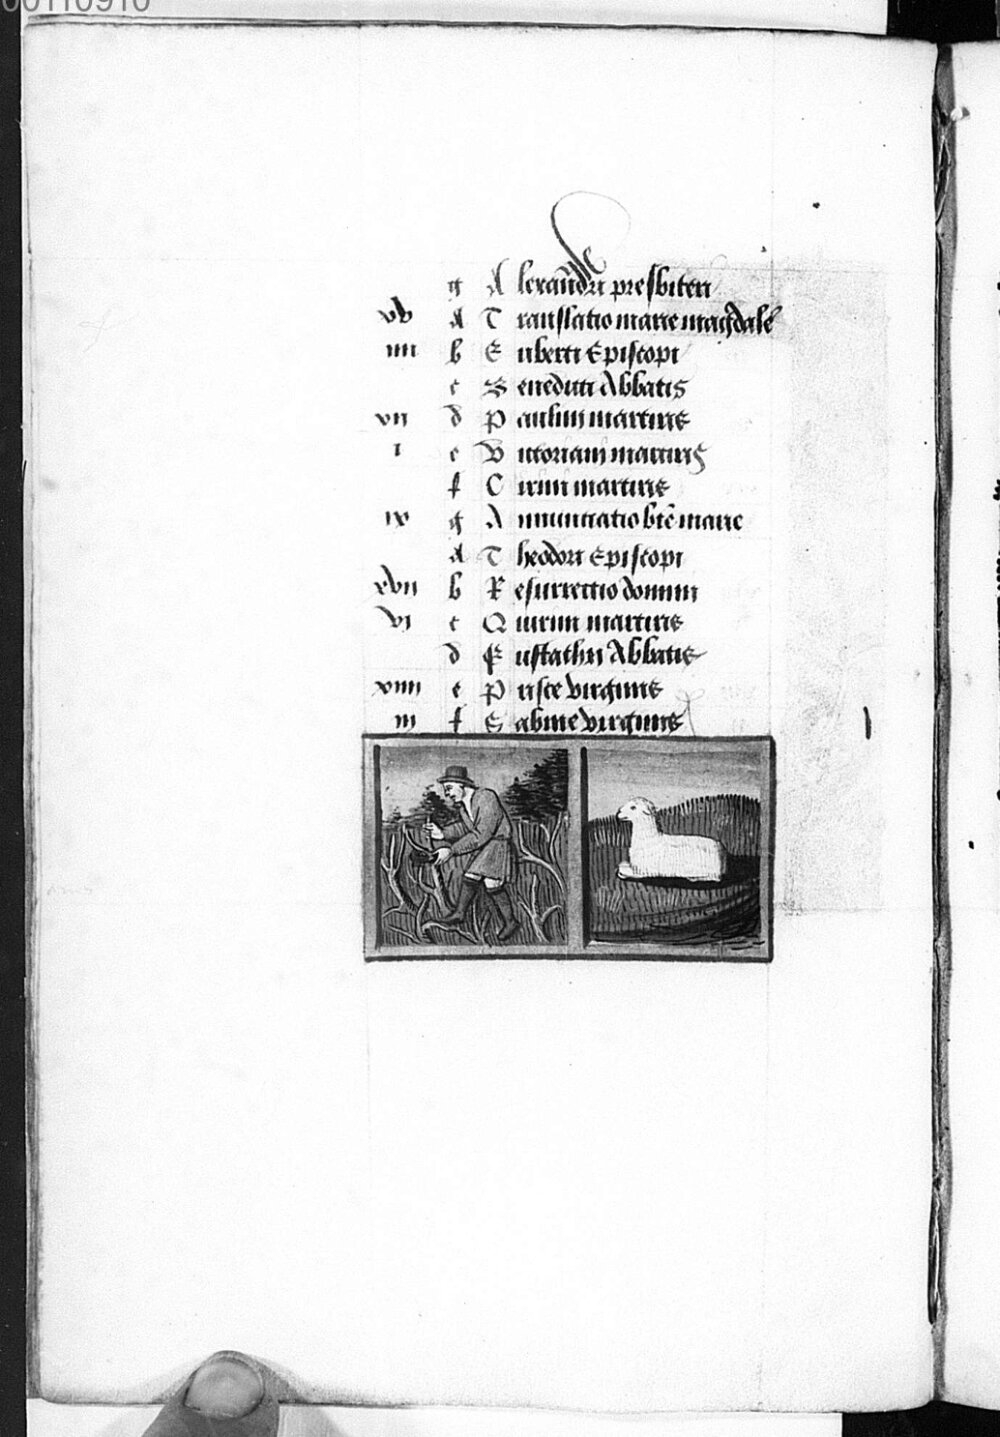 00110910
g A lexandri presbiteri
xv A T ranslatio marie magdale
iiii b E uberti Episcopi
c B enedicti Abbatis
xii d P aulini martiris
i e V ictoriani martiris
f C irini martiris
ix g A nnunciatio bte marie
A T heodori Episcopi
xvii b R esurrectio domini
vi c Q uirini martiris
d E ustachii Abbatis
xiiii e P risce virginis
iii f S abine virginis